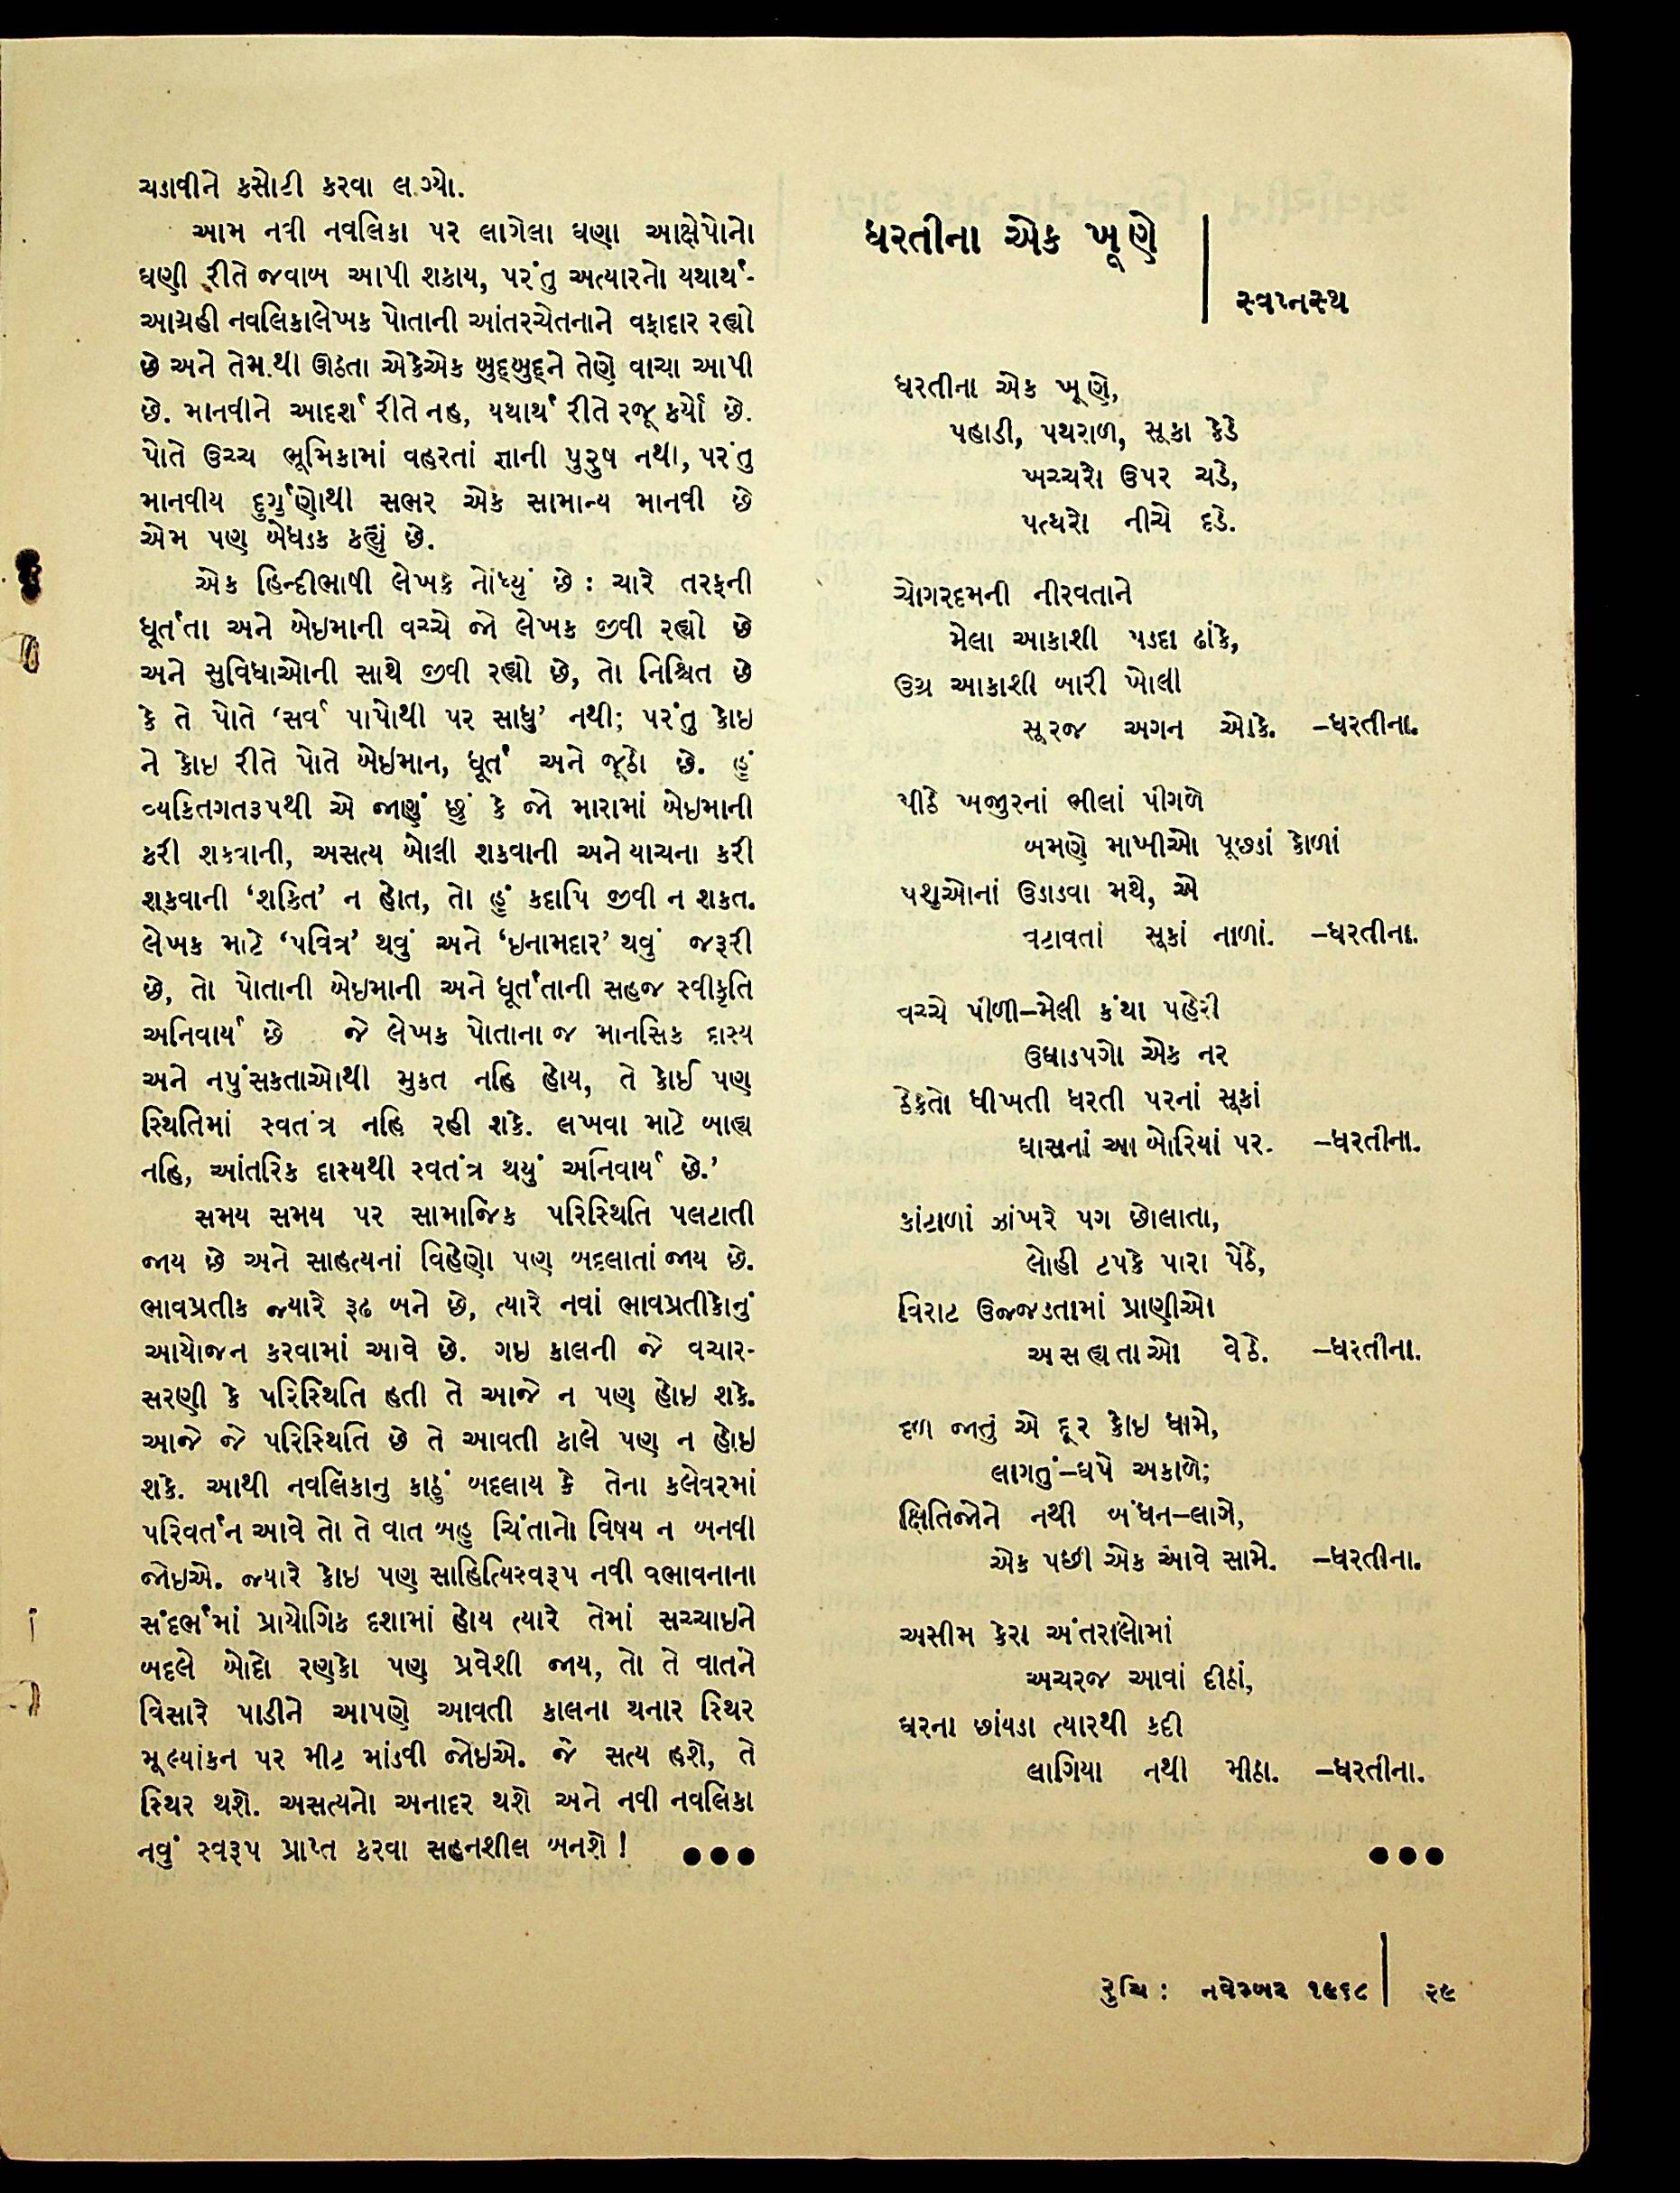 ચડાવીને કસોટી કરવા લ.ગ્યો.
આમ નવી નવલિકા પર લાગેલા ઘણા આક્ષેપોનો
ઘણી રીતે જવાબ આપી શકાય, પરંતુ અત્યારનો યથાર્થ-
આગ્રહી નવલિકાલેખક પોતાની આંતરચેતનાને વફાદાર રહ્યો
છે અને તેમ.થી ઊઠતા એકેએક બુદ્બુદ્ને તેણે વાચા આપી
છે. માનવીને આદર્શ રીતે નહ, યથાર્થ રીતે રજૂ કર્યો છે.
પોતે ઉચ્ચ ભૂમિકામાં વહરતાં જ્ઞાની પુરુષ નથી, પરંતુ
માનવીય દુર્ગુણોથી સભર એક સામાન્ય માનવી છે
એમ પણ બેધડક કહ્યું છે.
એક હિન્દીભાષી લેખકે નોંધ્યું છે : ચારે તરફની
ધૂર્તતા અને બેઇમાની વચ્ચે જો લેખક જીવી રહ્યો છે
અને સુવિધાઓની સાથે જીવી રહ્યો છે, તો નિશ્ચિત છે
કે તે પોતે ‘સર્વ પાપોથી પર સાધુ’ નથી; પરંતુ કોઇ
ને કોઇ રીતે પોતે બેઈમાન, ધૂર્ત અને જૂઠો છે. હું
વ્યક્તિગતરૂપથી એ જાણું છું કે જો મારામાં બેઇમાની
કરી શકવાની, અસત્ય બોલી શકવાની અને યાચના કરી
શકવાની ‘શક્તિ’ ન હોત, તો હું કદાપિ જીવી ન શકત.
લેખક માટે ‘પવિત્ર’ થવું અને ‘ઇનામદાર’ થવું જરૂરી
છે, તો પોતાની બેઇમાની અને ધૂર્તતાની સહજ સ્વીકૃતિ
અનિવાર્ય છે જે લેખક પોતાના જ માનસિક દાસ્ય
અને નપુંસકતાઓથી મુક્ત નહિ હોય, તે કોઈ પણ
સ્થિતિમાં સ્વતંત્ર નહિ રહી શકે. લખવા માટે બાહ્ય
નહિ, આંતરિક દાસ્યથી સ્વતંત્ર થયું અનિવાર્ય છે.’
સમય સમય પર સામાજિક પરિસ્થિતિ પલટાતી
જાય છે અને સાહત્યનાં વિહેણો પણ બદલાતાં જાય છે.
ભાવપ્રતીક જ્યારે રૂઢ બને છે, ત્યારે નવાં ભાવપ્રતીકોનું
આયોજન કરવામાં આવે છે. ગઇ કાલની જે વચાર-
સરણી કે પરિસ્થિતિ હતી તે આજે ન પણ હોઇ શકે.
આજે જે પરિસ્થિતિ છે તે આવતી કાલે પણ ન હોઇ
શકે. આથી નવલિકાનુ કાઠું બદલાય કે તેના કલેવરમાં
પરિવર્તન આવે તો તે વાત બહુ ચિંતાનો વિષય ન બનવી
જોઇએ. જ્યારે કોઇ પણ સાહિત્યિસ્વરૂપ નવી વભાવનાના
સંદર્ભમાં પ્રાયોગિક દશામાં હોય ત્યારે તેમાં સચ્ચાઇને
બદલે બોદો રણકો પણ પ્રવેશી જાય, તો તે વાતને
વિસારે પાડીને આપણે આવતી કાલના થનાર સ્થિર
મૂલ્યાંકન પર મીટ માંડવી જોઇએ. જે સત્ય હશે, તે
સ્થિર થશે. અસત્યનો અનાદર થશે અને નવી નવલિકા
નવું સ્વરૂપ પ્રાપ્ત કરવા સહનશીલ બનશે ! ●●●
ધરતીના એક ખૂણે
સ્વપ્નસ્થ
ધરતીના એક ખૂણે,
પહાડી, પથરાળ, સૂકા કેડે
ખચ્ચરો ઉપર ચડે,
પત્થરો નીચે દડે.
ચોગરદમની નીરવતાને
મેલા આકાશી પડદા ઢાંકે,
ઉગ્ર આકાશી બારી ખોલી
સૂરજ અગન ઓકે. –ધરતીના.
પીઠે ખજુરનાં ભીલાં પીગળે
બમણે માખીઓ પૂછડાં કોળાં
પશુઓનાં ઉડાડવા મથે, એ
વટાવતાં સૂકાં નાળાં. –ધરતીના.
વચ્ચે પીળી–મેલી કંથા પહેરી
ઉઘાડપગો એક નર
ઠેકતો ધીખતી ધરતી પરનાં સૂકાં
ઘાસનાં આ બોરિયાં પર. –ધરતીના.
કાંટાળાં ઝાંખરે પગ છોલાતા,
લોહી ટપકે પારા પેઠે,
વિરાટ ઉજ્જડતામાં પ્રાણીઓ
અસહ્યતાઓ વેઠે. –ધરતીના.
દળ જાતું એ દૂર કોઇ ધામે,
લાગતું–ધપે અકાળે;
ક્ષિતિજોને નથી બંધન–લાગે,
એક પછી એક આવે સામે. –ધરતીના.
અસીમ કેરા અંતરાલોમાં
અચરજ આવાં દીઠાં,
ઘરના છાંયડા ત્યારથી કદી
લાગિયા નથી મીઠા. –ધરતીના.
●●●
રુચિ : નવેમ્બર ૧૯૬૮ | ૨૯